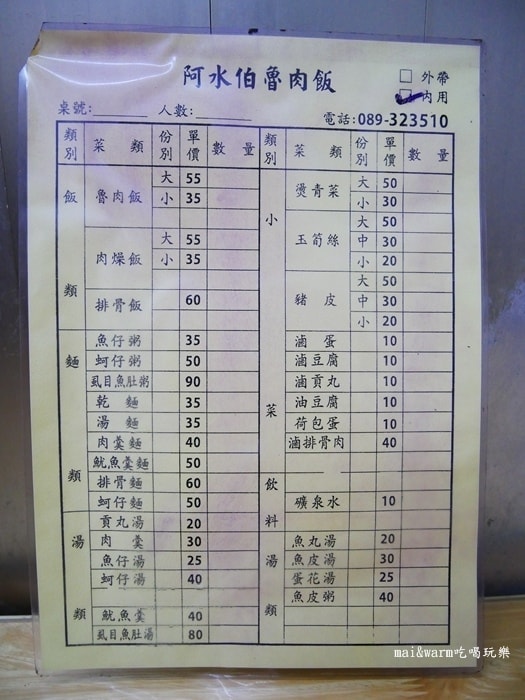 阿水伯魯肉飯
外帶
內用
桌號: 人數:
電話:089-323510
類別 菜類 份別 單價 數量
飯類
魯肉飯 大 55
小 35
肉燥飯 大 55
小 35
排骨飯 60
麵類
魚仔粥 35
蚵仔粥 50
虱目魚肚粥 90
乾麵 35
湯麵 35
肉羹麵 40
魷魚羹麵 50
排骨麵 60
蚵仔麵 50
湯類
貢丸湯 20
肉羹 30
魚仔湯 25
蚵仔湯 40
魷魚羹 40
虱目魚肚湯 80
類別 菜類 份別 單價 數量
小菜
燙青菜 大 50
小 30
玉筍絲 大 50
中 30
小 20
豬皮 大 50
中 30
小 20
滷蛋 10
滷豆腐 10
滷貢丸 10
油豆腐 10
荷包蛋 10
滷排骨肉 40
飲料
礦泉水 10
湯類
魚丸湯 20
魚皮湯 30
蛋花湯 25
魚皮粥 40
mai&warm吃喝玩樂